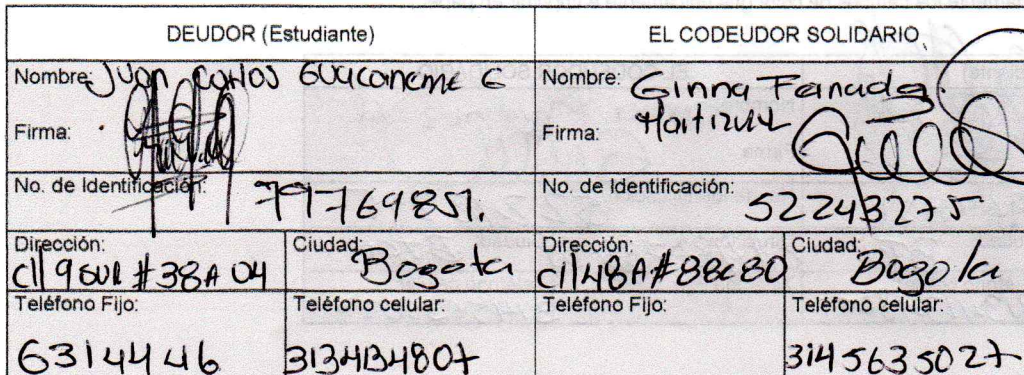 DEUDOR (Estudiante)
EL CODEUDOR SOLIDARIO
Nombre: Juan Carlos Guacaneme G
Firma:
Nombre: Ginna Fernada
Martinez
Firma:
No. de Identificación: 79769851.
No. de Identificación: 52243275
Dirección: Cll 9 sur # 38A 04
Ciudad: Bogota
Dirección: Cll 48A # 88C 80
Ciudad: Bogota
Teléfono Fijo: 6314446
Teléfono celular: 3134134807
Teléfono Fijo:
Teléfono celular: 3145635027